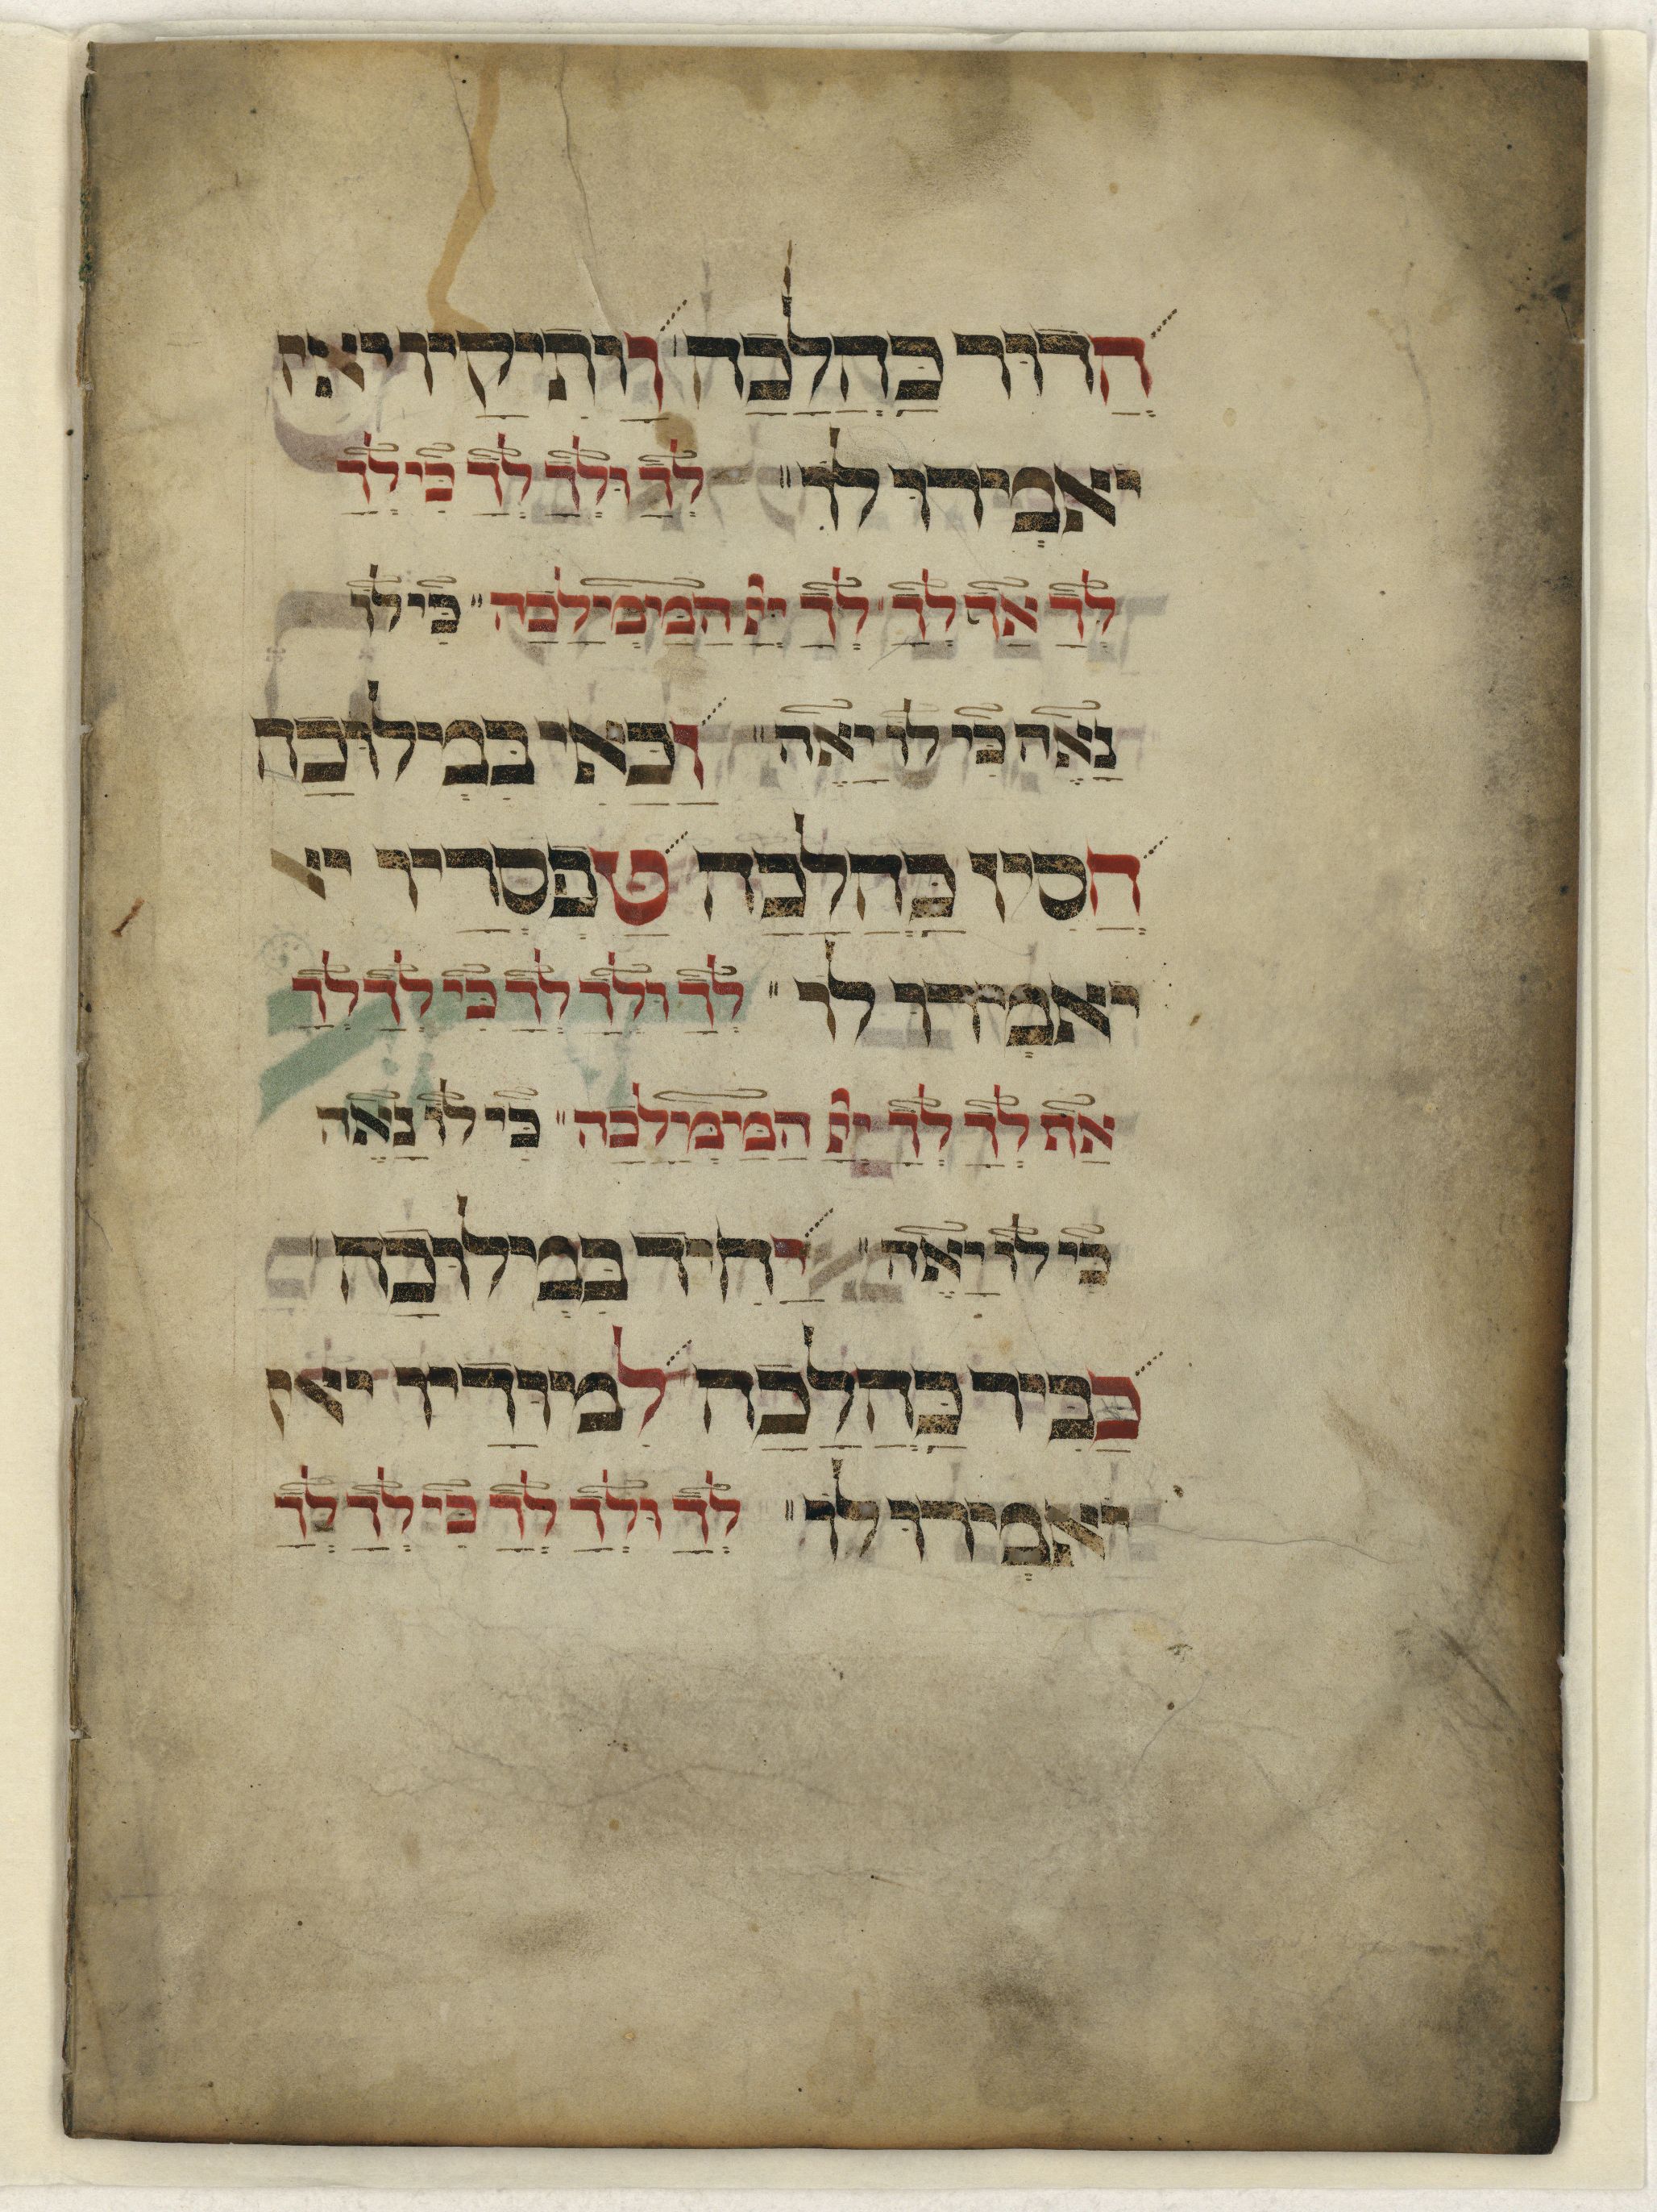 הדור כהלכה ׃ ותיקיו יאו
יאמירו לו ׃ לך ולך לך כי לך
לך אף לך לך יי המימילכה ׃ כי לו
נאה כי לו יאה ׃ זכאי במילוכה
חסין כהלכה טפסריו יא
יאמירו לו ׃ לך ולך לך כי לך לך
אף לך לך יי המימילכה ׃ כי לו נאה
כי לו יאה ׃ יחיד במילוכה ׃
כביר כהלכה ׃ למיודיו יאו
יאמירו לו ׃ לך ולך לך כי לך לך